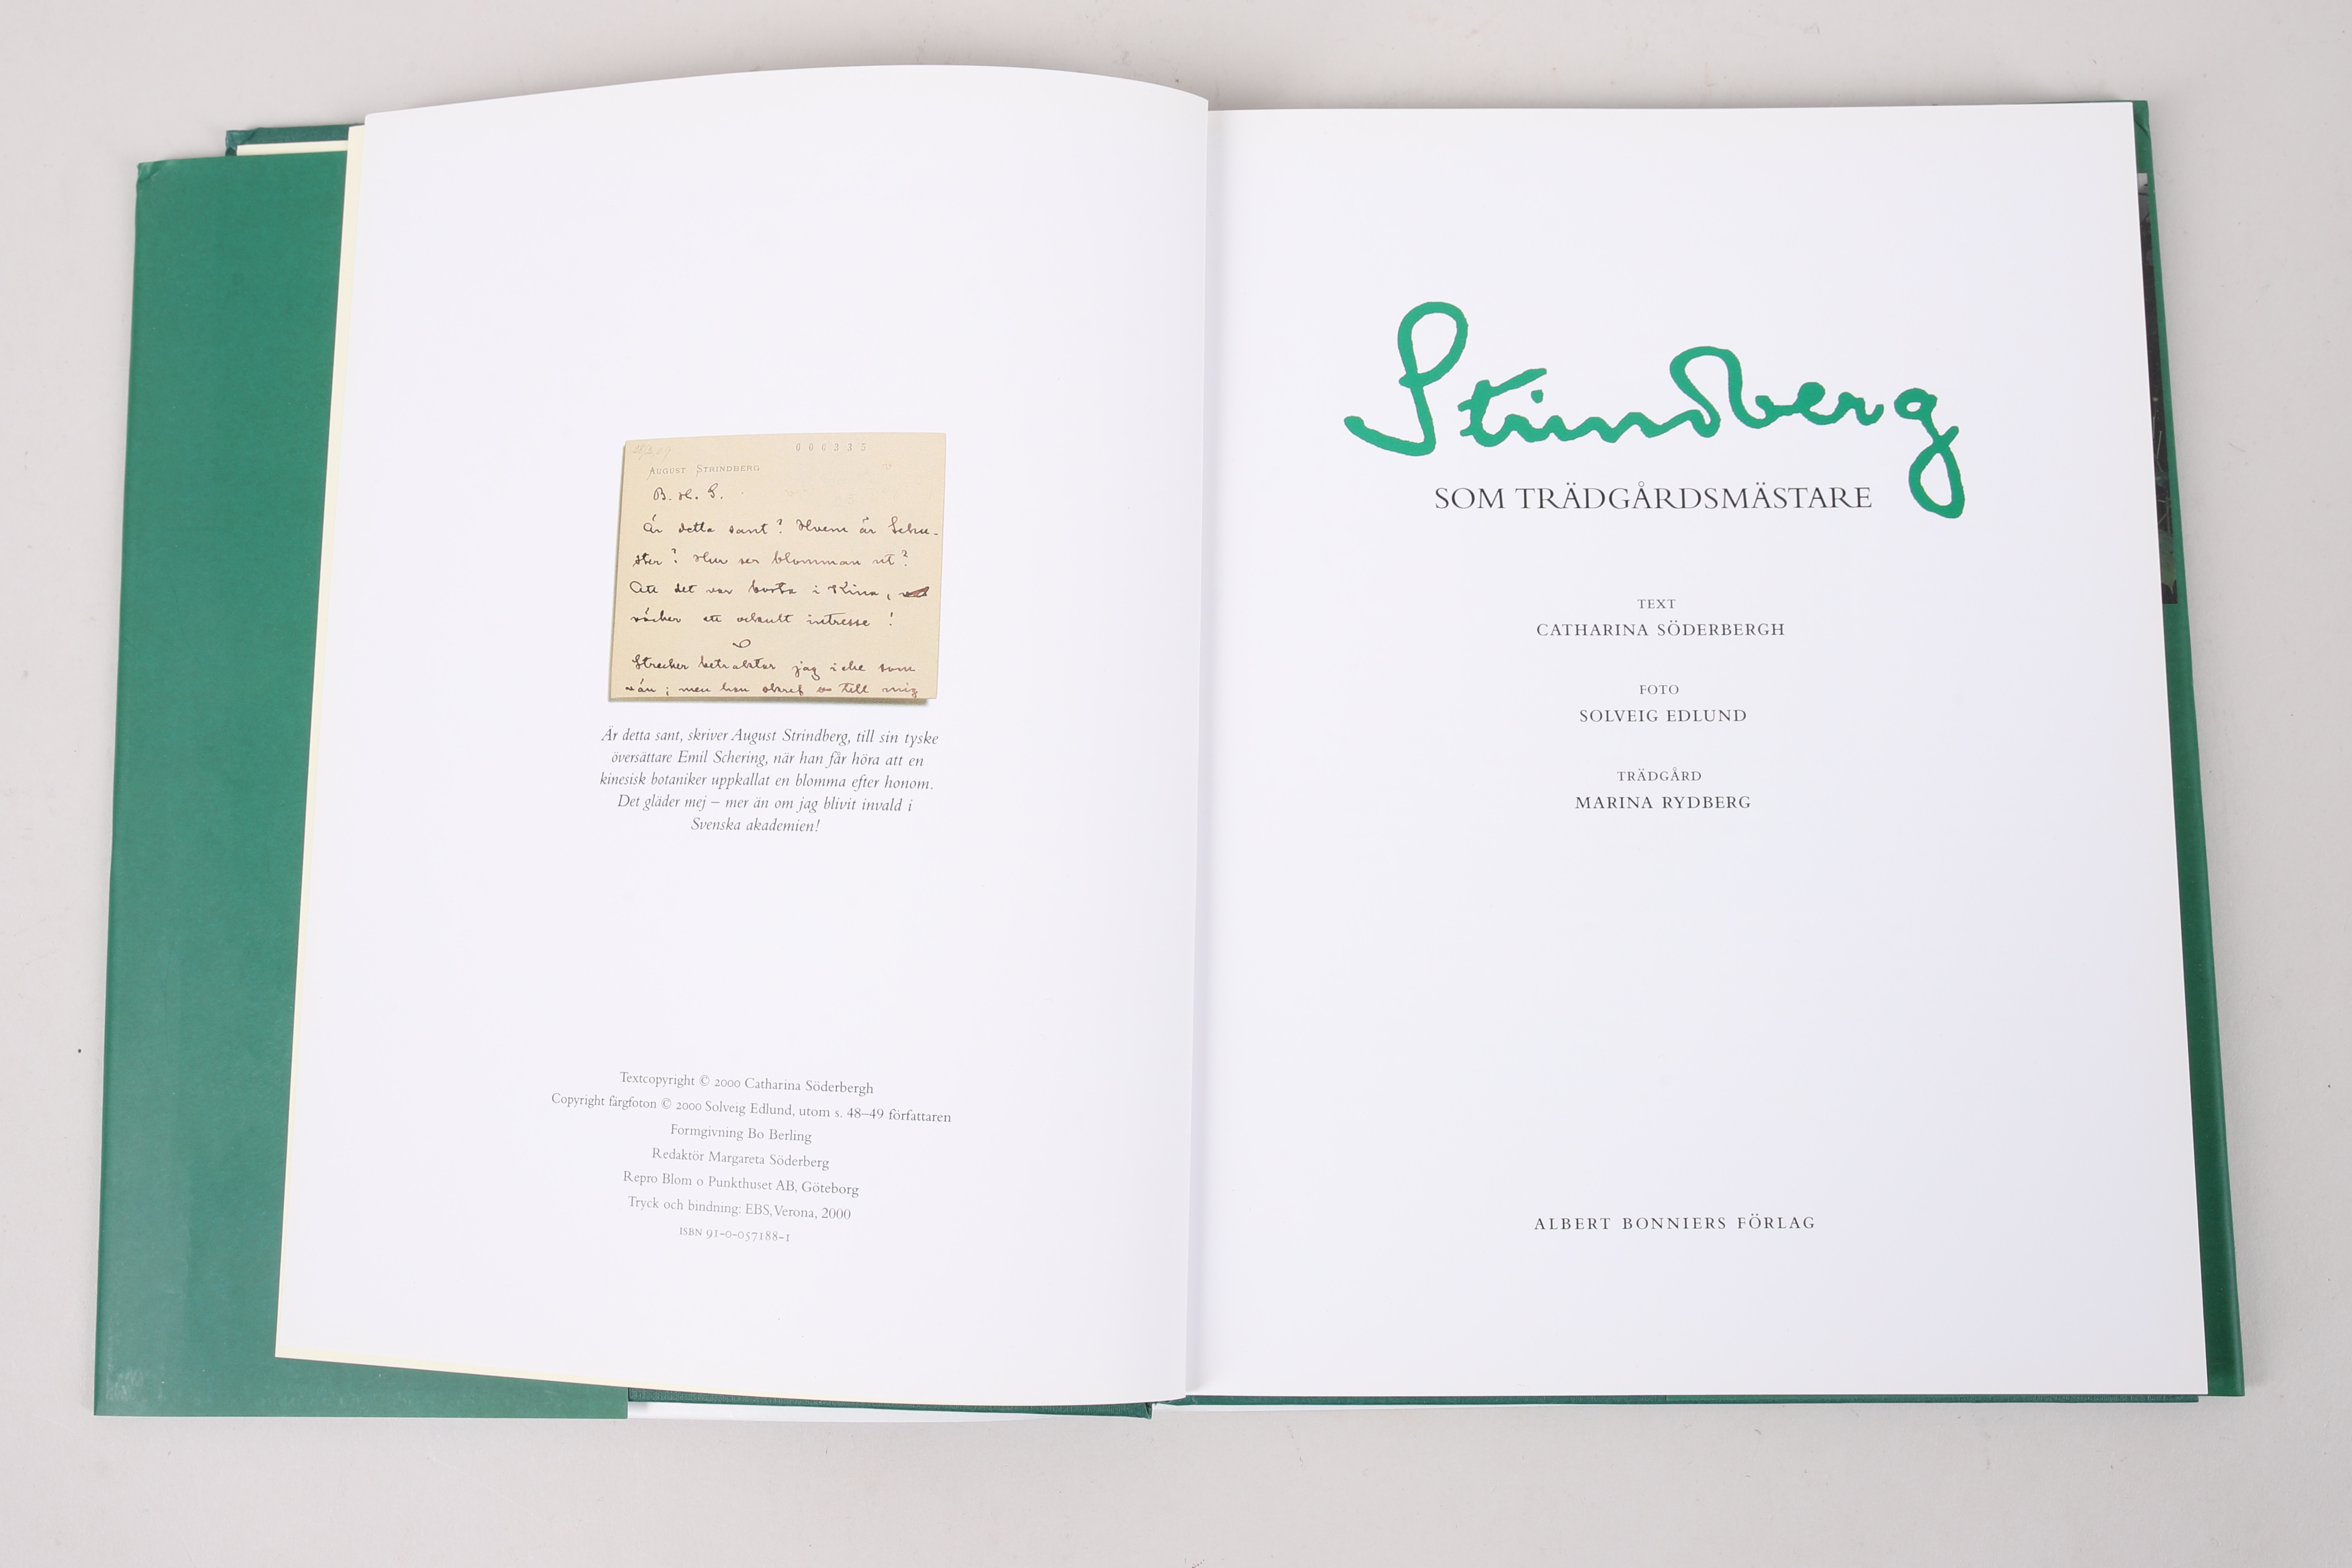 000335
AUGUST STRINDBERG
B. H. S.
Är detta sant? Hvem är Schu-
ster? Hur ser blomman ut?
Att det var borta i Kina,
väcker ett odeult intresse!
Strecker betraktar jag icke som
vän; men han skref till mig
Är detta sant, skriver August Strindberg, till sin tyske
översättare Emil Schering, när han får höra att en
kinesisk botaniker uppkallat en blomma efter honom.
Det gläder mej – mer än om jag blivit invald i
Svenska akademien!
Textcopyright © 2000 Catharina Söderbergh
Copyright färgfoton © 2000 Solveig Edlund, utom s. 48–49 författaren
Formgivning Bo Berling
Redaktör Margareta Söderberg
Repro Blom o Punkthuset AB, Göteborg
Tryck och bindning: EBS, Verona, 2000
ISBN 91-0-057188-1
Strindberg
SOM TRÄDGÅRDSMÄSTARE
TEXT
CATHARINA SÖDERBERGH
FOTO
SOLVEIG EDLUND
TRÄDGÅRD
MARINA RYDBERG
ALBERT BONNIERS FÖRLAG